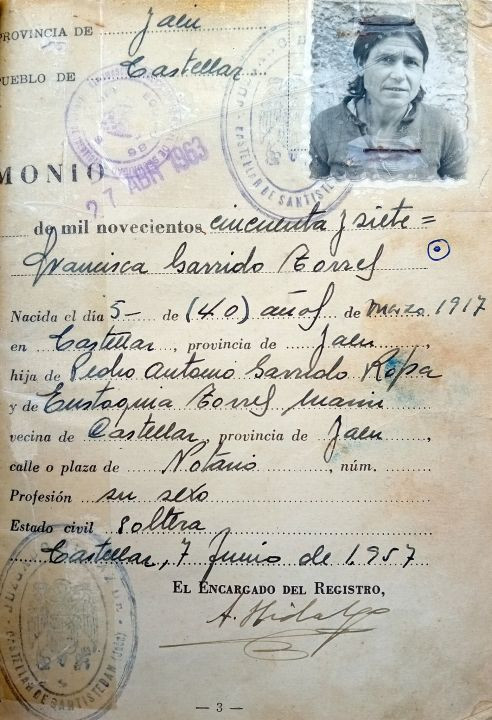 PROVINCIA DE Jaen
PUEBLO DE Castellar
27 ABR 1963
CASTELLAR DE SANTISTEBAN
MONIO
de mil novecientos cincuenta y siete =
Francisca Garrido Torres
Nacida el día 5- de (40) años de marzo 1917
en Castellar, provincia de Jaen,
hija de Pedro Antonio Garrido Ropa
y de Eustaquia Torres
vecina de Castellar, provincia de Jaen,
calle o plaza de Notario, núm.
Profesión su sexo
Estado civil soltera
Castellar, 7 Junio de 1.957
EL ENCARGADO DEL REGISTRO,
A. Hidalgo
CASTELLAR DE SANTISTEBAN (JAEN)
— 3 —